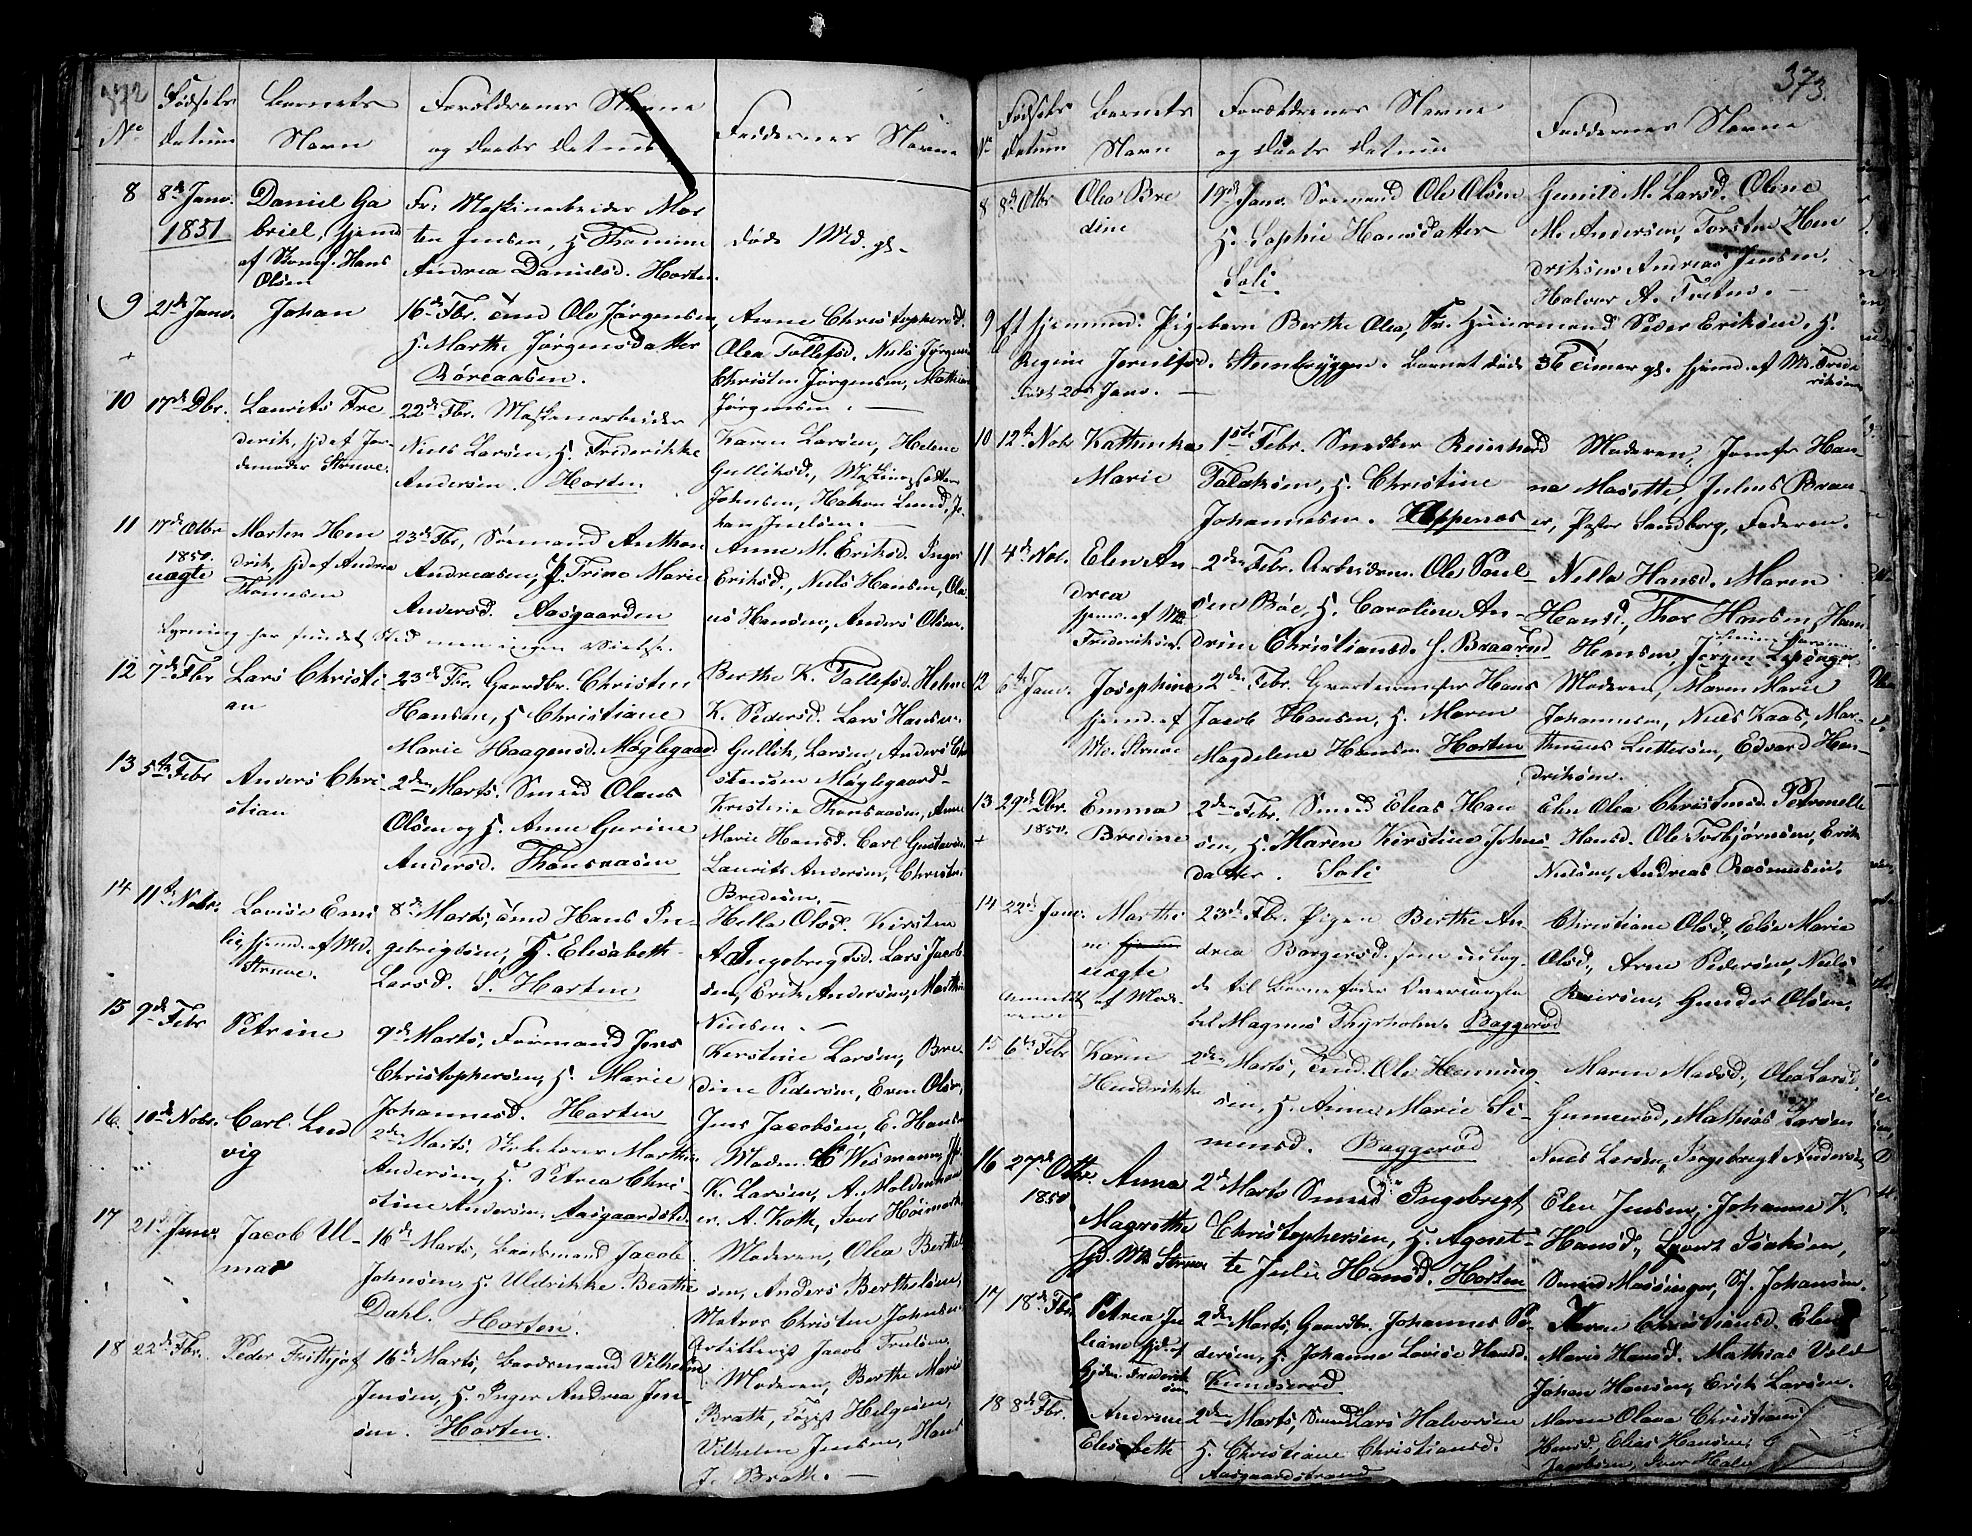 372
No
Fødsels
Datum
Barnets
Navn
Forældrenes Navne
og Daabs Datum
Faddernes Navne
8
8de Janv.
1851
Daniel Ga
briel, hjemd
af Hans
Olsen
Fr. Maskinarbeider Mor
ten Jensen, H. Thomine
Andrea Danielsd. Horten
døde 1 Md. gl.
9
21de Janv.
Johan
16de Fbr. Ole Jørgensen,
H. Marthe Jørgensdatter
Røreaasen.
Anne Christophersd.
Olea Tollefsd. Niels Jørgens
Christen Jørgensen, Mathias
Jørgensen.
10
17de Dbr.
Laurits Fre
derik, hjd af Jor
demoder Struve.
22de Fbr. Maskinarbeider
Niels Larsen, H. Frederikke
Andersen. Horten
Karen Larsen, Helene
Gulliksd.,
Johnsen, Hakon Lund, Jo
han Juelsen.
11
17de Otbr
1850.
uægte
Morten Hen
drik, hjd af Andrea
Thomesen
23de Fbr, Sømand Anthon
Andreasen, P. Trine Marie
Andersd. Aasgaarden
Anne M. Eriksd. Inger
Eriksd., Niels Hansen, Ola
us Hansen, Anders Olsen.
Lysning har fundet Sted men ingen Vielse.
12
7de Fbr
Lars Christi
an
23de Fbr. Gaardbr. Christen
Hansen, H Christiane
Marie Haagensd. Møglegaard
Berthe K. Tollefsd. Helene
K. Pedersd. Lars Hansen
Gullik Larsen, Anders Chri
stensen Møglegaard
13
5te Febr
Anders Chri
stian
2den Marts. Smed Olaus
Olsen og H. Anne Gurine
Andersd. Thonsaasen
Kristine Thonsaasen, Anne
Marie Hansd. Carl Gustavsen
Laurits Andersen, Christen
Bredesen.
14
11te Nobr.
Lovise Emi
lie, hjemd. af Md.
Struve.
8de Marts, Hans In
gebrigtsen, H. Elisabeth
Larsd. S. Horten
Helle Olsd. Kirsten
A. Ingebrigtsd. Lars Jacob
sen, Erik Andersen, Marthin
Nielsen.
15
9de Febr
Petrine
9de Marts, Formand Jens
Christophersen, H. Marie
Johannesd. Horten
Kirstine Larsen, Bre
dine Pedersen, Even Olsen,
Jens Jacobsen, E. Hansen
16.
10de Nobr.
Carl Lud
vig
2den Marts, Marthin
Andersen, H. Petrea Chri
stine Andersen. Aasgaardstd.
Madm. C. Wismann, J.
K. Larsen, A. Moldenhau
er. A. Koth, Iver Høimork
17
21de Janv.
Jacob Ul
mar
16de Marts, Baadsmand Jacob
Johnsen, H. Uldrikke Beathe
Dahl. Horten.
Moderen, Olea Berthel
sen, Anders Berthelsen,
Matros Christen Johnsen
Artillerist Jacob Truelsen,
18
22de Fbr.
Peder Frithjof
16de Marts, Baadsmand Vilhelm
Jensen, H. Inger Andrea Jen
sen. Horten.
Moderen, Berthe Marie
Brath, Helgesen,
Vilhelm Jensen, Hans
J. Brath.
373.
No
Fødsels
Datum
Barnets
Navn
Forældrenes Navne
og Daabs Datum
Faddernes Navne
8
8de Otbr
Olea Bre
dine
19de Janv. Sømand Ole Olsen
H. Sophie Hansdatter
Soli.
Gunild M. Larsd. Oline
M. Andersen, Torsten Hen
driksen Andreas Jensen.
Halvor A.
9
Et hjemmd. Pigebarn Berthe Olea, Fr. Huusmand Peder Eriksen, H.
Regine Stenbryggen. Barnet døde 36 Timer gl. hjemd. af Md. Frede
riksen
født 20de Janv.
10
12te Nobr
Kathinka
Marie
1ste Febr. Snedker Reinhard
Falaksen, H. Christine
Johannesen. Uppenas
Moderen, Jomfr Han
na Masette, Julius Brau
er, Peter Sandborg, Faderen.
11
4de Nov.
Elen An
drea
hjemd. af Md.
Frederiksen.
2den Fbr. Arbeidsm. Ole Poul
sen Bøe, H. Caroline An
drine Christiansd. H. Braarud
Nelle Hansd. Maren
Hansd, Thor Hansen, Hans
Hansen, Jørgen
12
6te Janv.
Josephine
hjemd. af
Md. Struve
2den Febr. Hans
Jacob Hansen, H. Maren
Magdelene Hansen Horten
Moderen, Maren Marie
Johannesen, Niels Kaas, Mar
thinus Luttersen, Edvard Hen
driksen.
13
29de Dbr.
1850.
Emma
Bredine
2den Febr. Smed Elias Han
sen, H. Maren Kirstine Johns
datter. Soli
Elen Olea Christensd. Petronelle
Hansd. Ole Torbjørnsen, Erik
Nielsen, Andreas Rasmussen.
14
22de Janv.
Marthi
ne
uægte
af Mode
23de Fbr. Pigen Berthe An
drea Borgersd. som udlag
de til Barnefader
Magnus Thyrholm. Baggerød
Christiane Olsd., Else Marie
Olsd., Arne Pedersen, Niels
Reiersen, Gunder Olsen.
15
6te Febr
Karen
Hendrikke
2den Marts, Ole Henning
sen, H. Anne Marie Si
mensd. Baggerød
Maren Madsd., Olea Larsd.
Gunnerød, Mathias Larsen
Niels Larsen, Ingebregt Andersen
16
27de Otbr
1850
Anna
Magrethe
hjd. Md. Struve
2de Marts Smed Ingebregt
Christophersen, H. Agnet
te Julie Hansd. Horten
Elen Jensen, Johanne K.
Hansd., Isaksen,
Smed Massinger, Sj. Johansen.
17
18de Fbr.
Petrea Ju
liane hjd. af
Gjdm. Frederik
sen
2den Marts, Gaardbr. Johannes Pe
dersen, H. Johanne Lovise Hansd.
Knudsrød
Karen Christiansd. Elen
Marie Hansd. Mathias Vold
Johan Hansen, Erik Larsen.
18
8de Fbr.
Andrine
Elisabeth
2den Marts, Smed Lars Halvorsen
H. Christiane Christiansd.
Aasgaardstrand
Maren Olava Christians
Hansd., Elias Hansen,
Jacobsen, Iver Halv